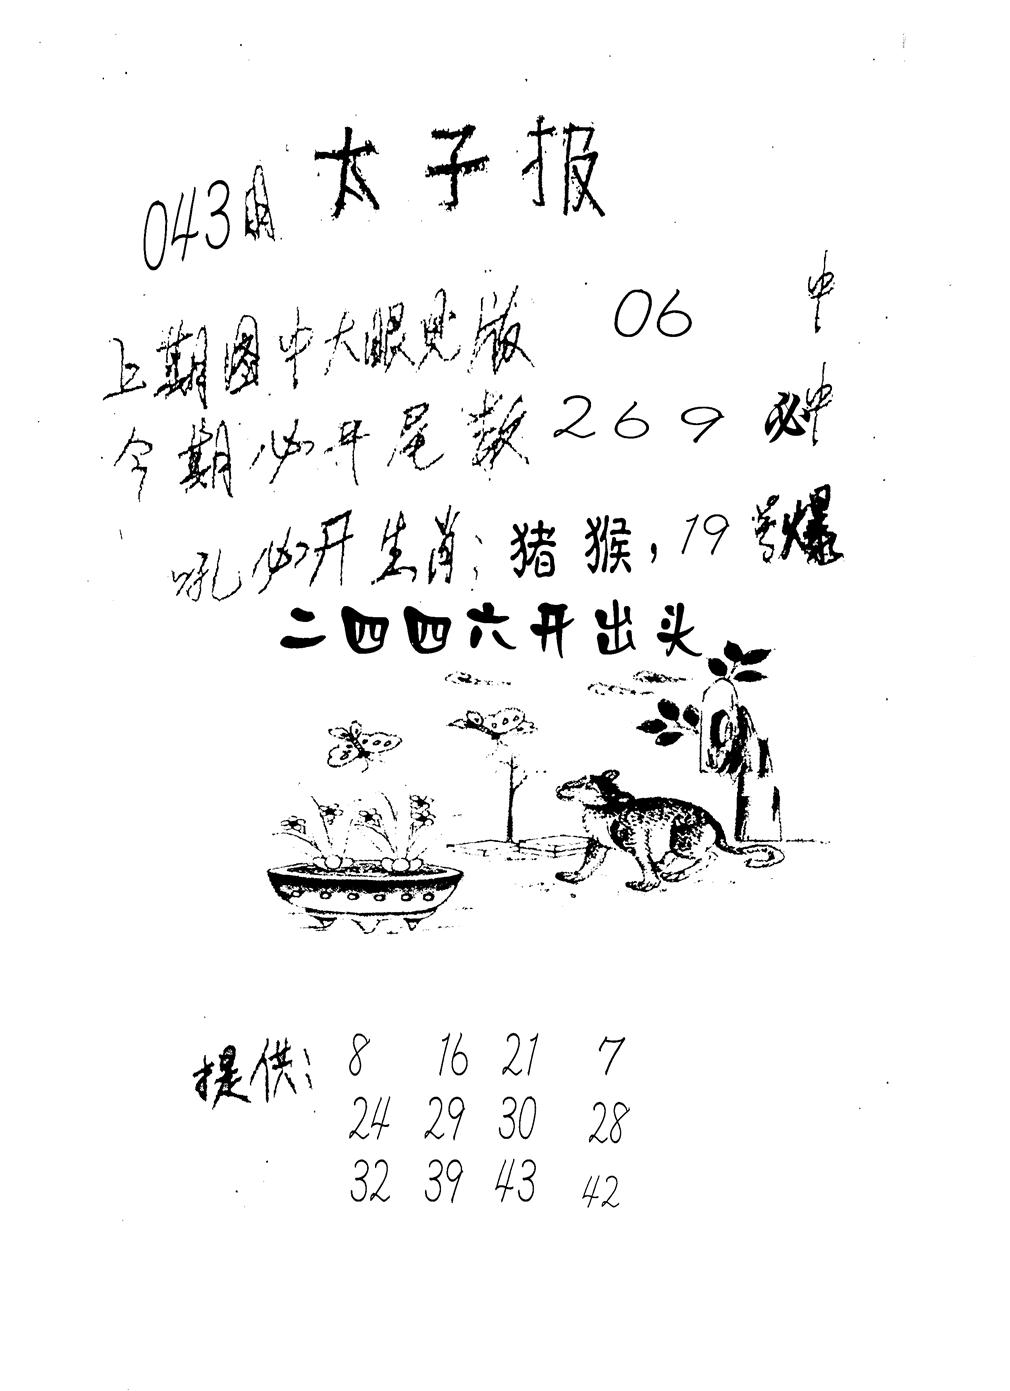 太子报
043期
上期图中大眼见版 06 中
今期必开尾数269必中
吼必开生肖:猪猴,19号爆
二四四六开出头
提供: 8 16 21 7
24 29 30 28
32 39 43 42